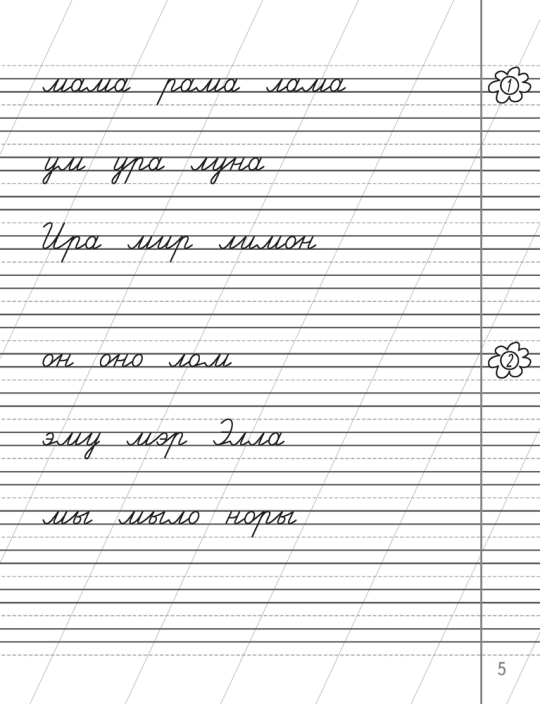 мама рама лама 1
ум ура луна
Ира мир лимон
он оно лом 2
эму мэр Элла
мы мыло норы
5